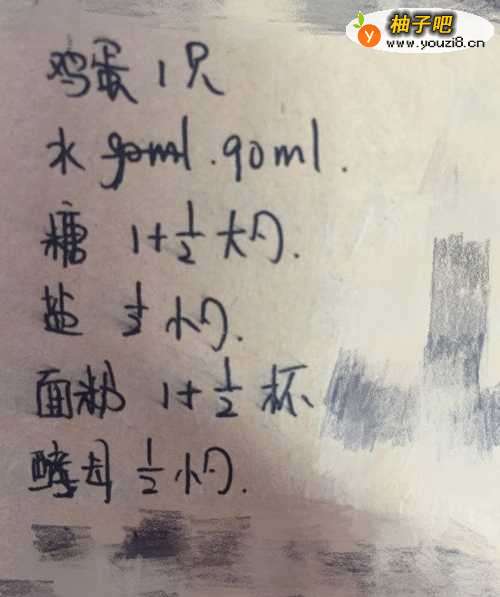 柚子吧
www.youzi8.cn
鸡蛋 1只
水 90ml.90ml.
糖 1+1/2 大勺.
盐 1/2 小勺.
面粉 1+1/2 杯、
酵母 1/2 小勺.